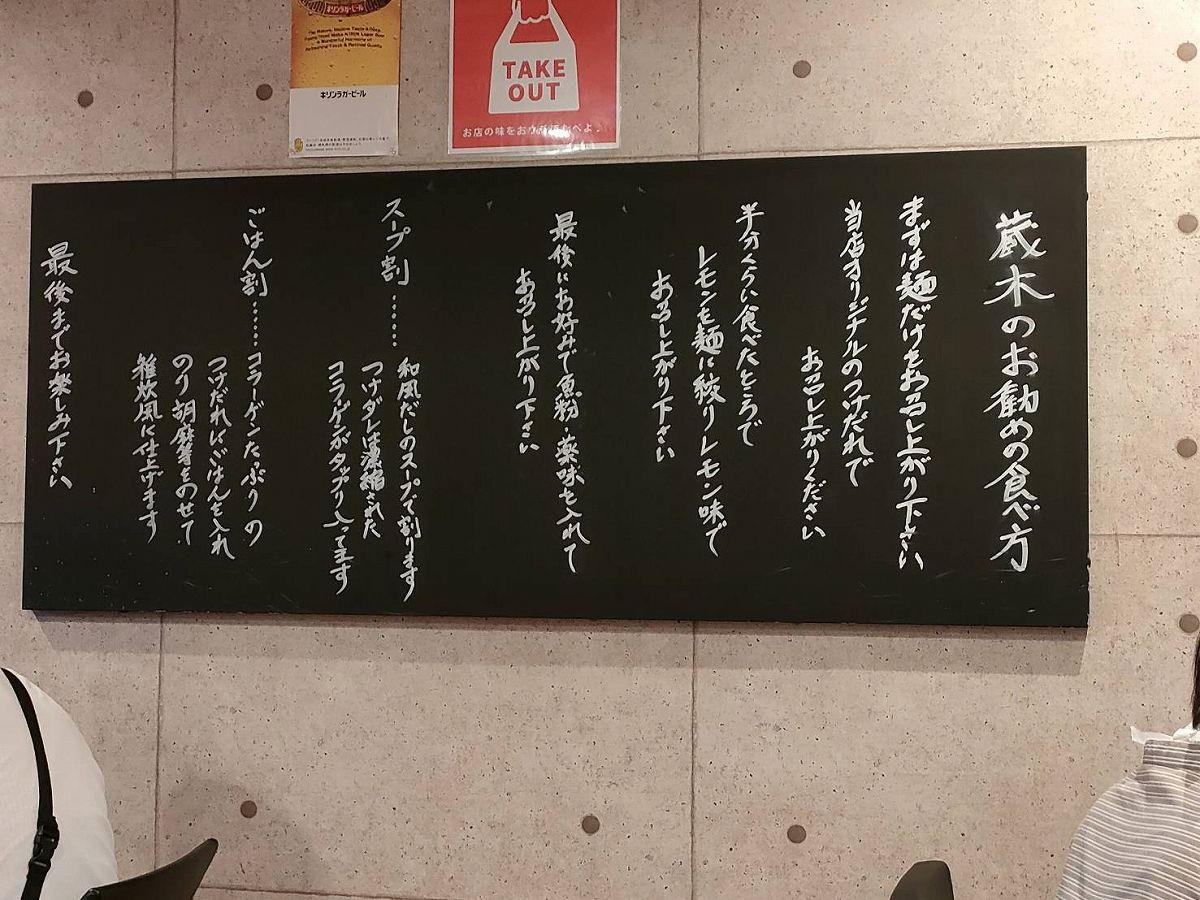 キリンラガービール
TAKE
OUT
蔵木のお勧めの食べ方
まずは麺だけをお召し上がり下さい
当店オリジナルのつけだれで
お召し上がりください
半分くらい食べたところで
レモンを麺に絞りレモン味で
お召し上がり下さい
最後にお好みで魚粉・薬味を入れて
お召し上がり下さい
スープ割……和風だしのスープで割ります
つけダレは濃縮された
コラーゲンがタップリ入ってます
ごはん割……コラーゲンたっぷりの
つけだれにごはんを入れ
のり胡麻等をのせて
雑炊風に仕上げます
最後までお楽しみ下さい